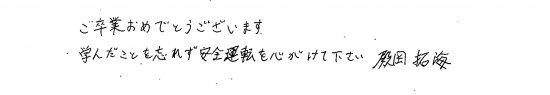 ご卒業おめでとうございます
学んだことを忘れず安全運転を心がけて下さい 殿岡 拓海